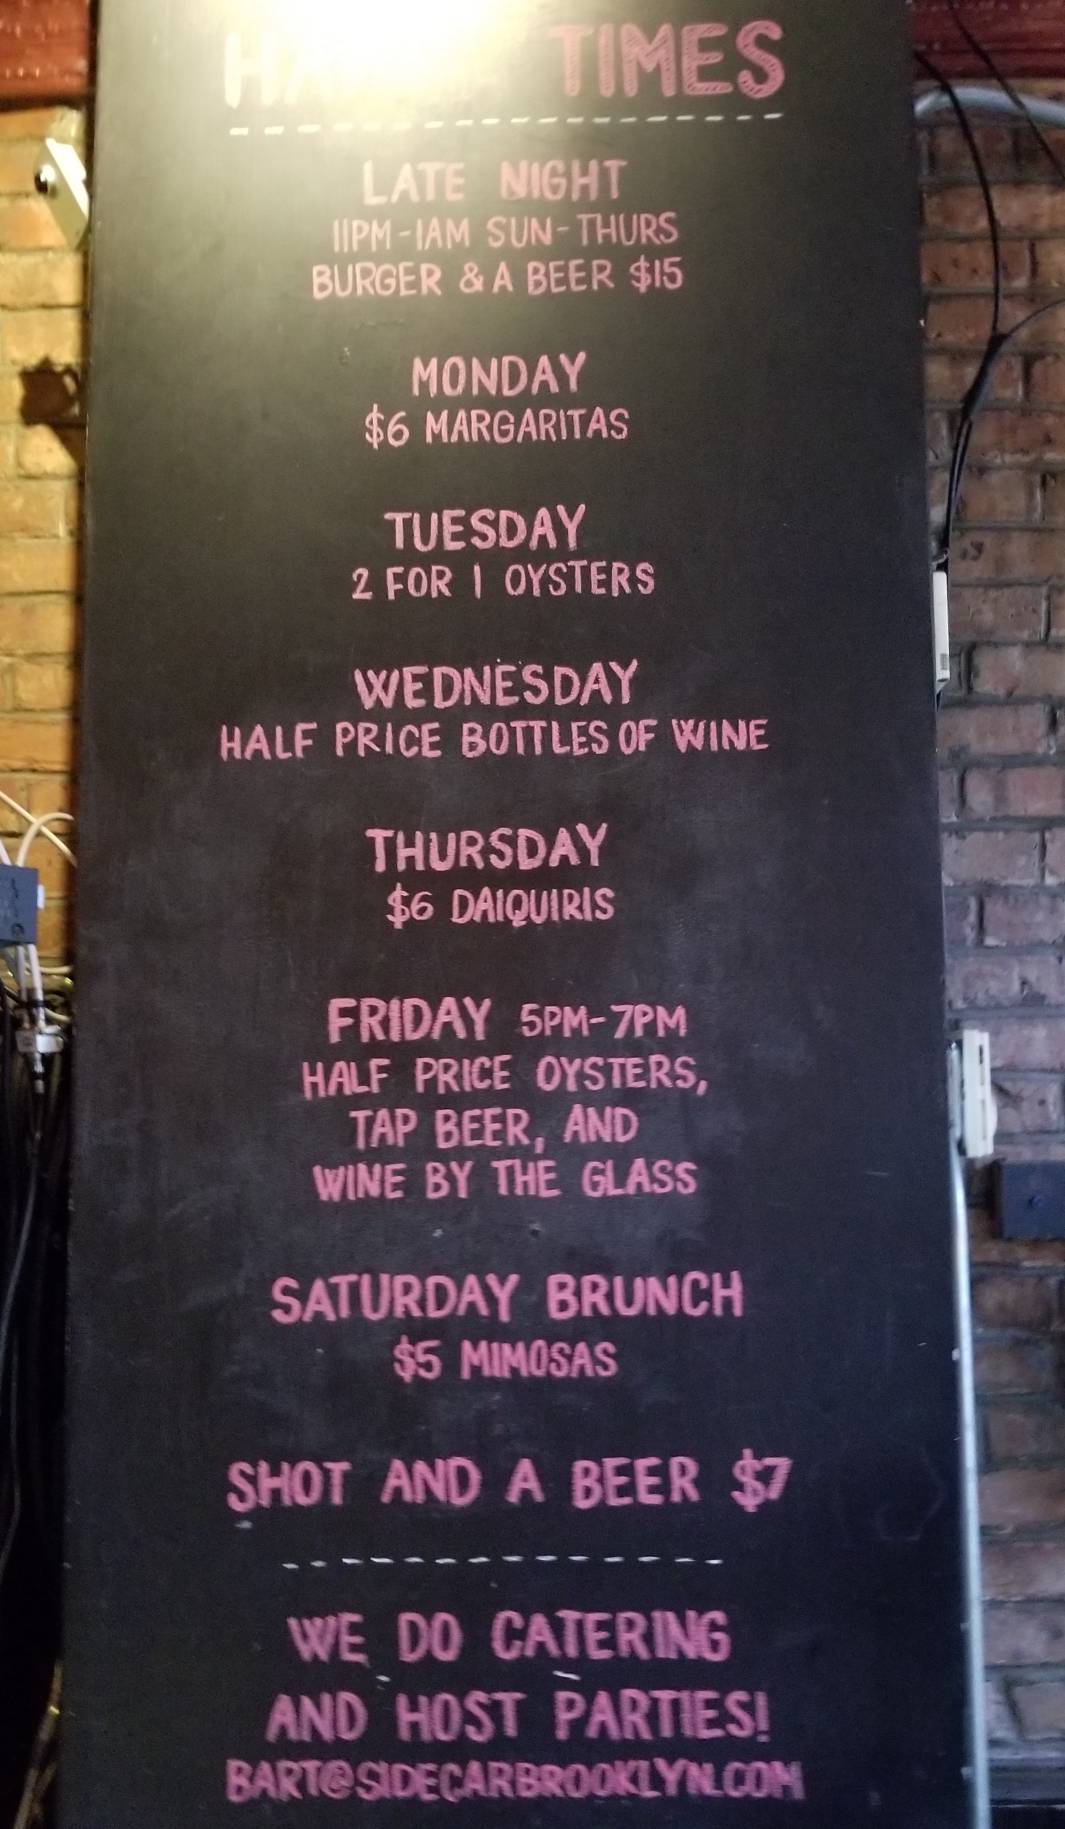 TIMES
LATE NIGHT
11PM-1AM SUN-THURS
BURGER & A BEER $15
MONDAY
$6 MARGARITAS
TUESDAY
2 FOR 1 OYSTERS
WEDNESDAY
HALF PRICE BOTTLES OF WINE
THURSDAY
$6 DAIQUIRIS
FRIDAY 5PM-7PM
HALF PRICE OYSTERS,
TAP BEER, AND
WINE BY THE GLASS
SATURDAY BRUNCH
$5 MIMOSAS
SHOT AND A BEER $7
WE DO CATERING
AND HOST PARTIES!
BART@SIDECARBROOKLYN.COM